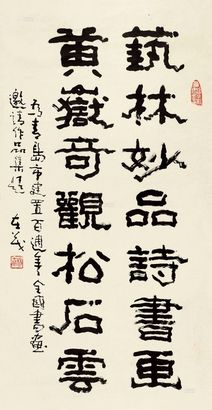 藝林妙品詩書畫
黄嶽奇觀松石雲
為青島市建置百週年全國書畫
邀請作品集題